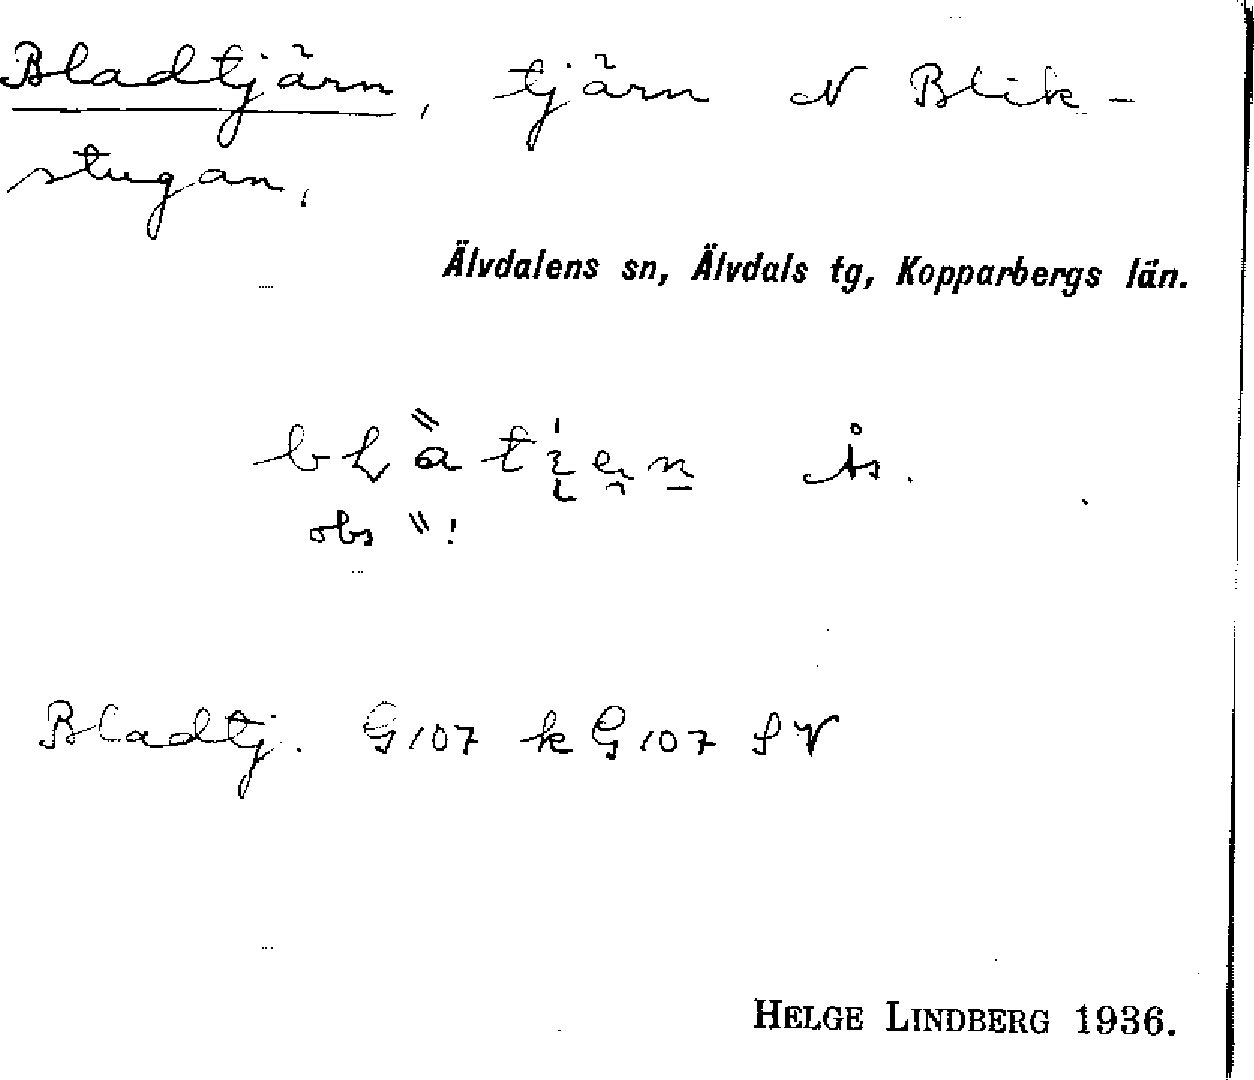 Bladtjärn, tjärn N Blik-
stugan.
Älvdalens sn, Älvdals tg, Kopparbergs län.
Ås.
obs "!
Bladtj. G107 k G107 SV
HELGE LINDBERG 1936.